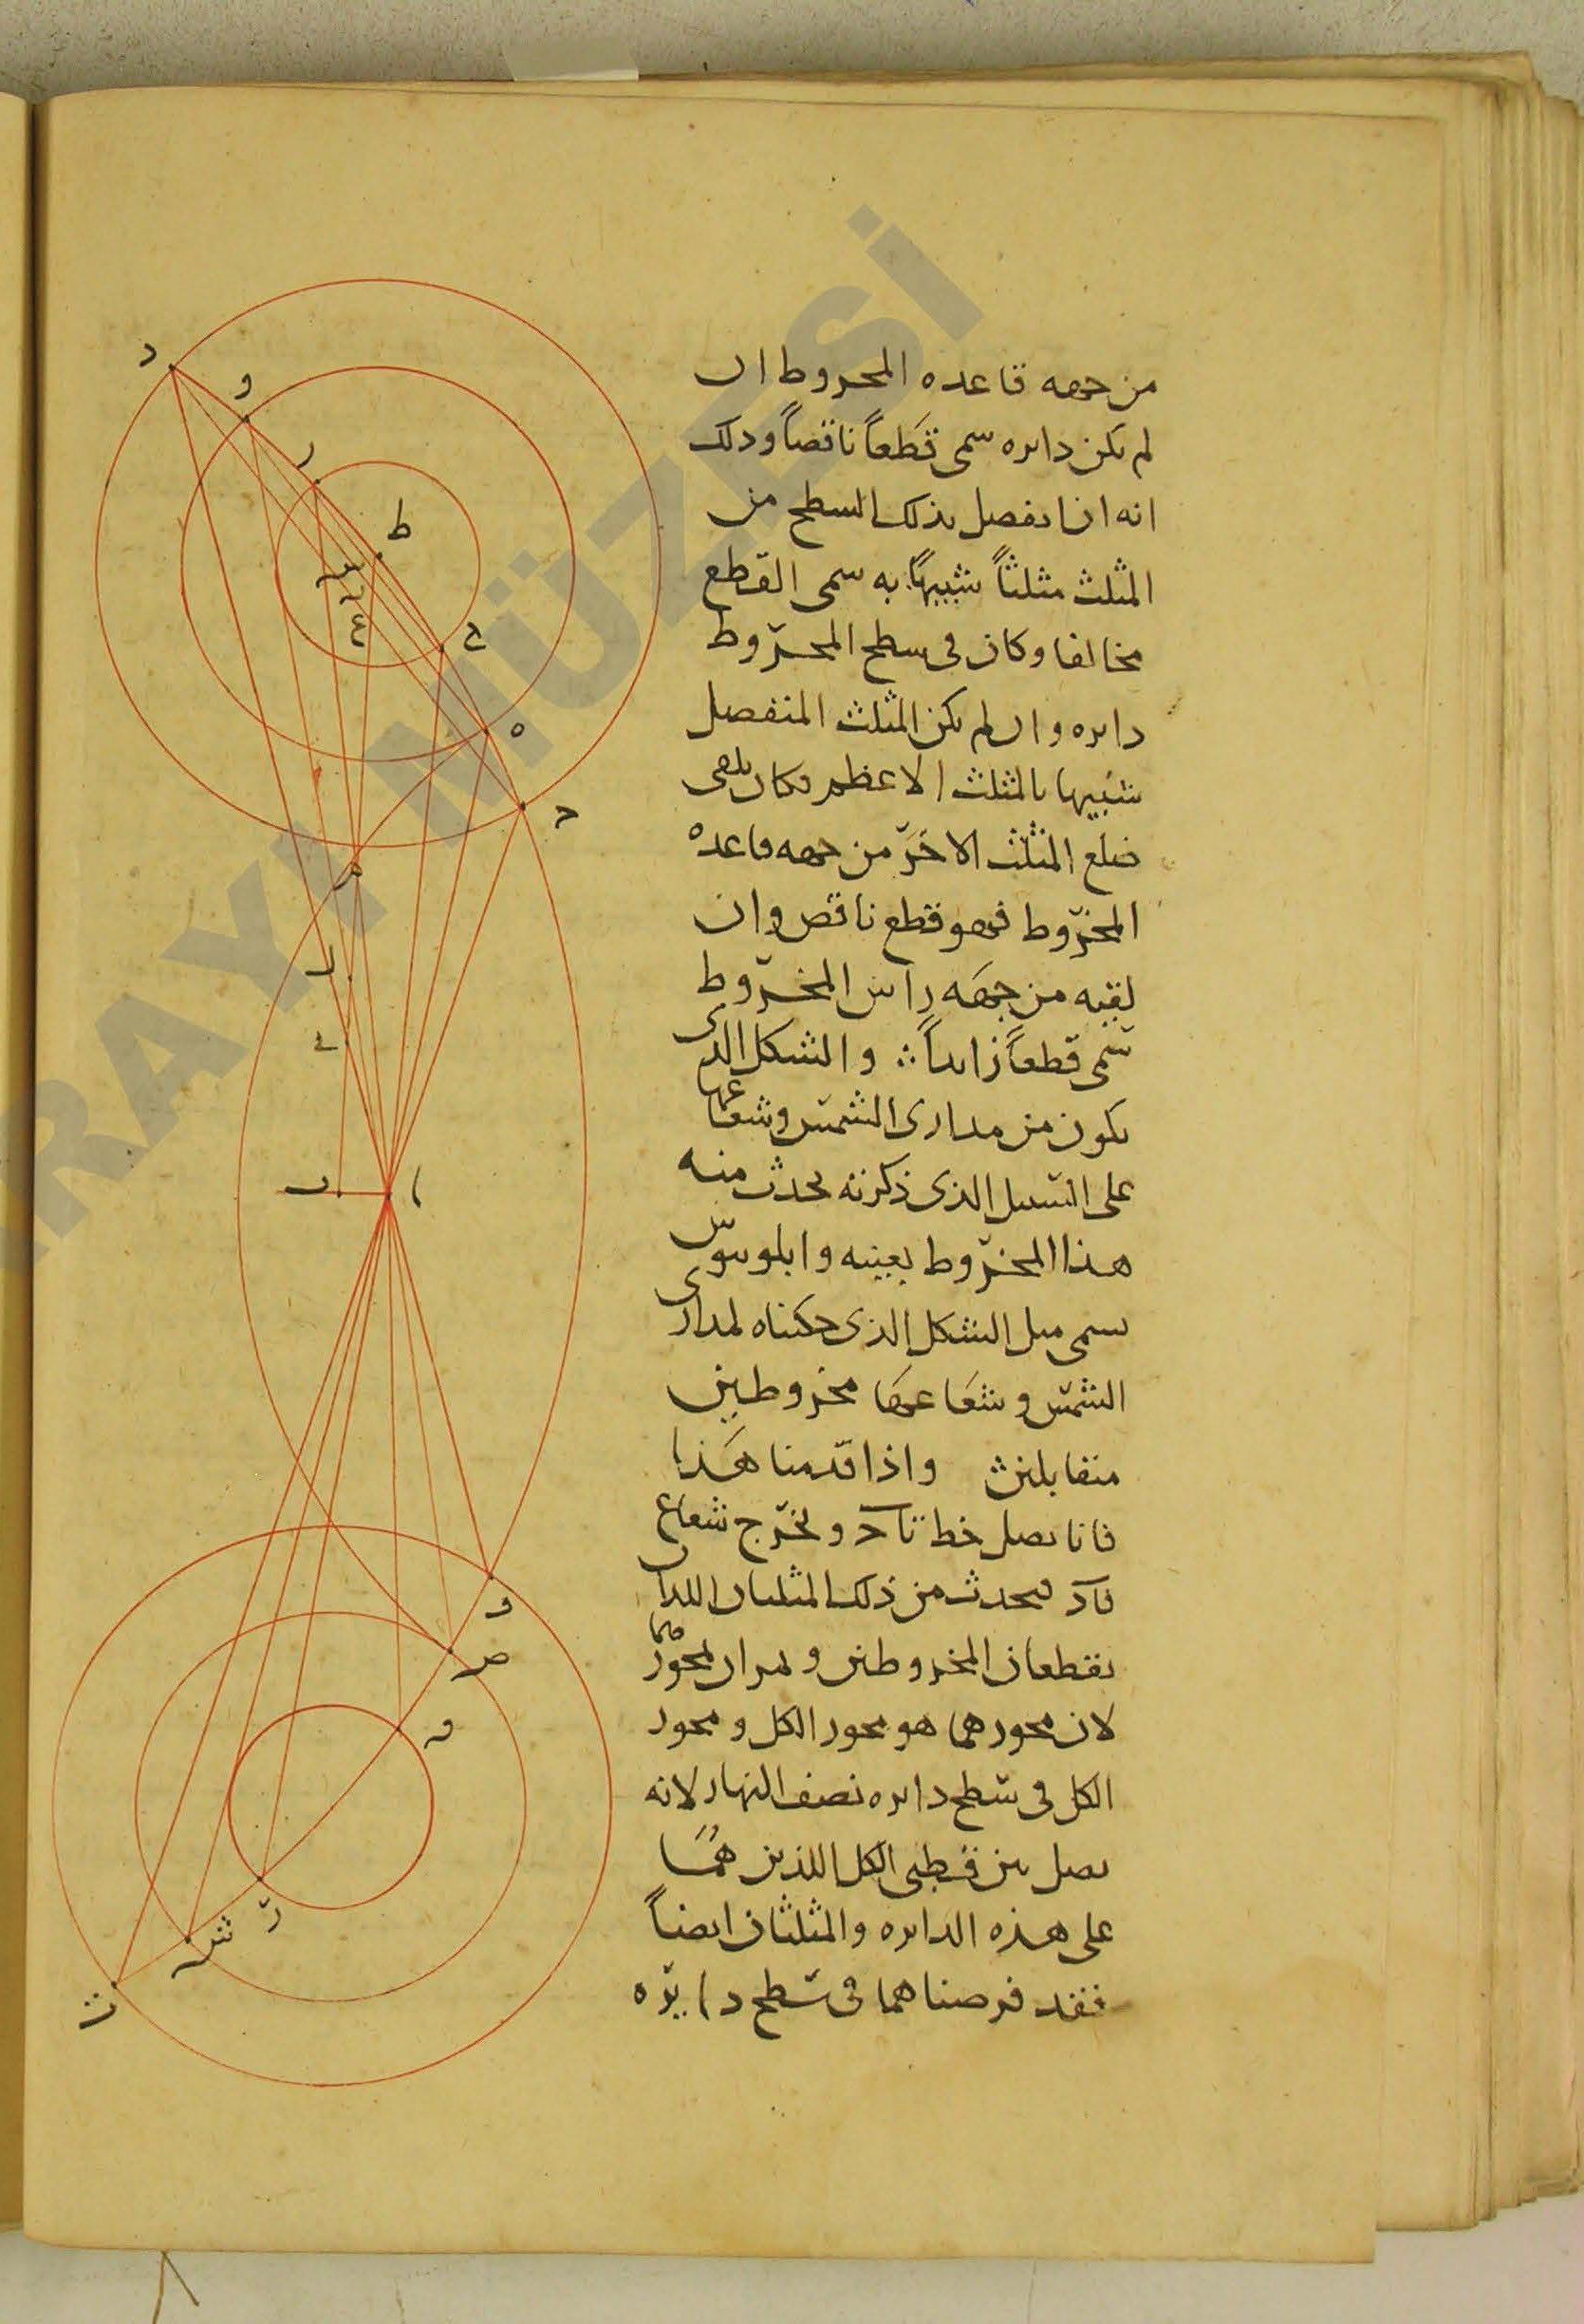 من جهه قاعده المخروط ان
لم يكن دايره سمى قطعاً ناقصاً وذلك
انه ان انفصل بذلك السطح من
المثلث مثلثاً شبيهاً به سمى القطع
مخالفا وكان فى سطح المخرّوط
دايره وان لم يكن المثلث المنفصل
شبيها بالمثلث الاعظم وكان يلقى
ضلع المثلث الاخرّ من جهه قاعده
المخرّوط فهو قطع ناقص وان
لقيه من جهه راس المخرّوط
سمى قطعاً زايداً ؞ والشكل الذى
يكون من مدارى الشمس وشعاعها
على السبيل الذى ذكرته يحدث منه
هذا المخرّوط بعينه وابلونيوس
يسمى مثل الشكل الذى حكيناه لمدارى
الشمس وشعاعها مخروطين
متقابلين واذا قدّمنا هذا
فانا نصل خط ثاد ونخرّج شعاع
قاد فيحدث من ذلك المثلثان اللذان
يقطعان المخروطين ويمران بمحوّرهما
لان محورهما هو محور الكل ومحور
الكل فى سطح دايره نصف النهار لانه
يصل بين قطبى الكل اللذين همَا
على هذه الدايره والمثلثان ايضاً
فقد فرضناهما فى سطح دايره
د
و
ر
ط
س
ع
ح
ه
ل
ب
ا
ص
ر
ش
ث
RAYI MÜZESİ